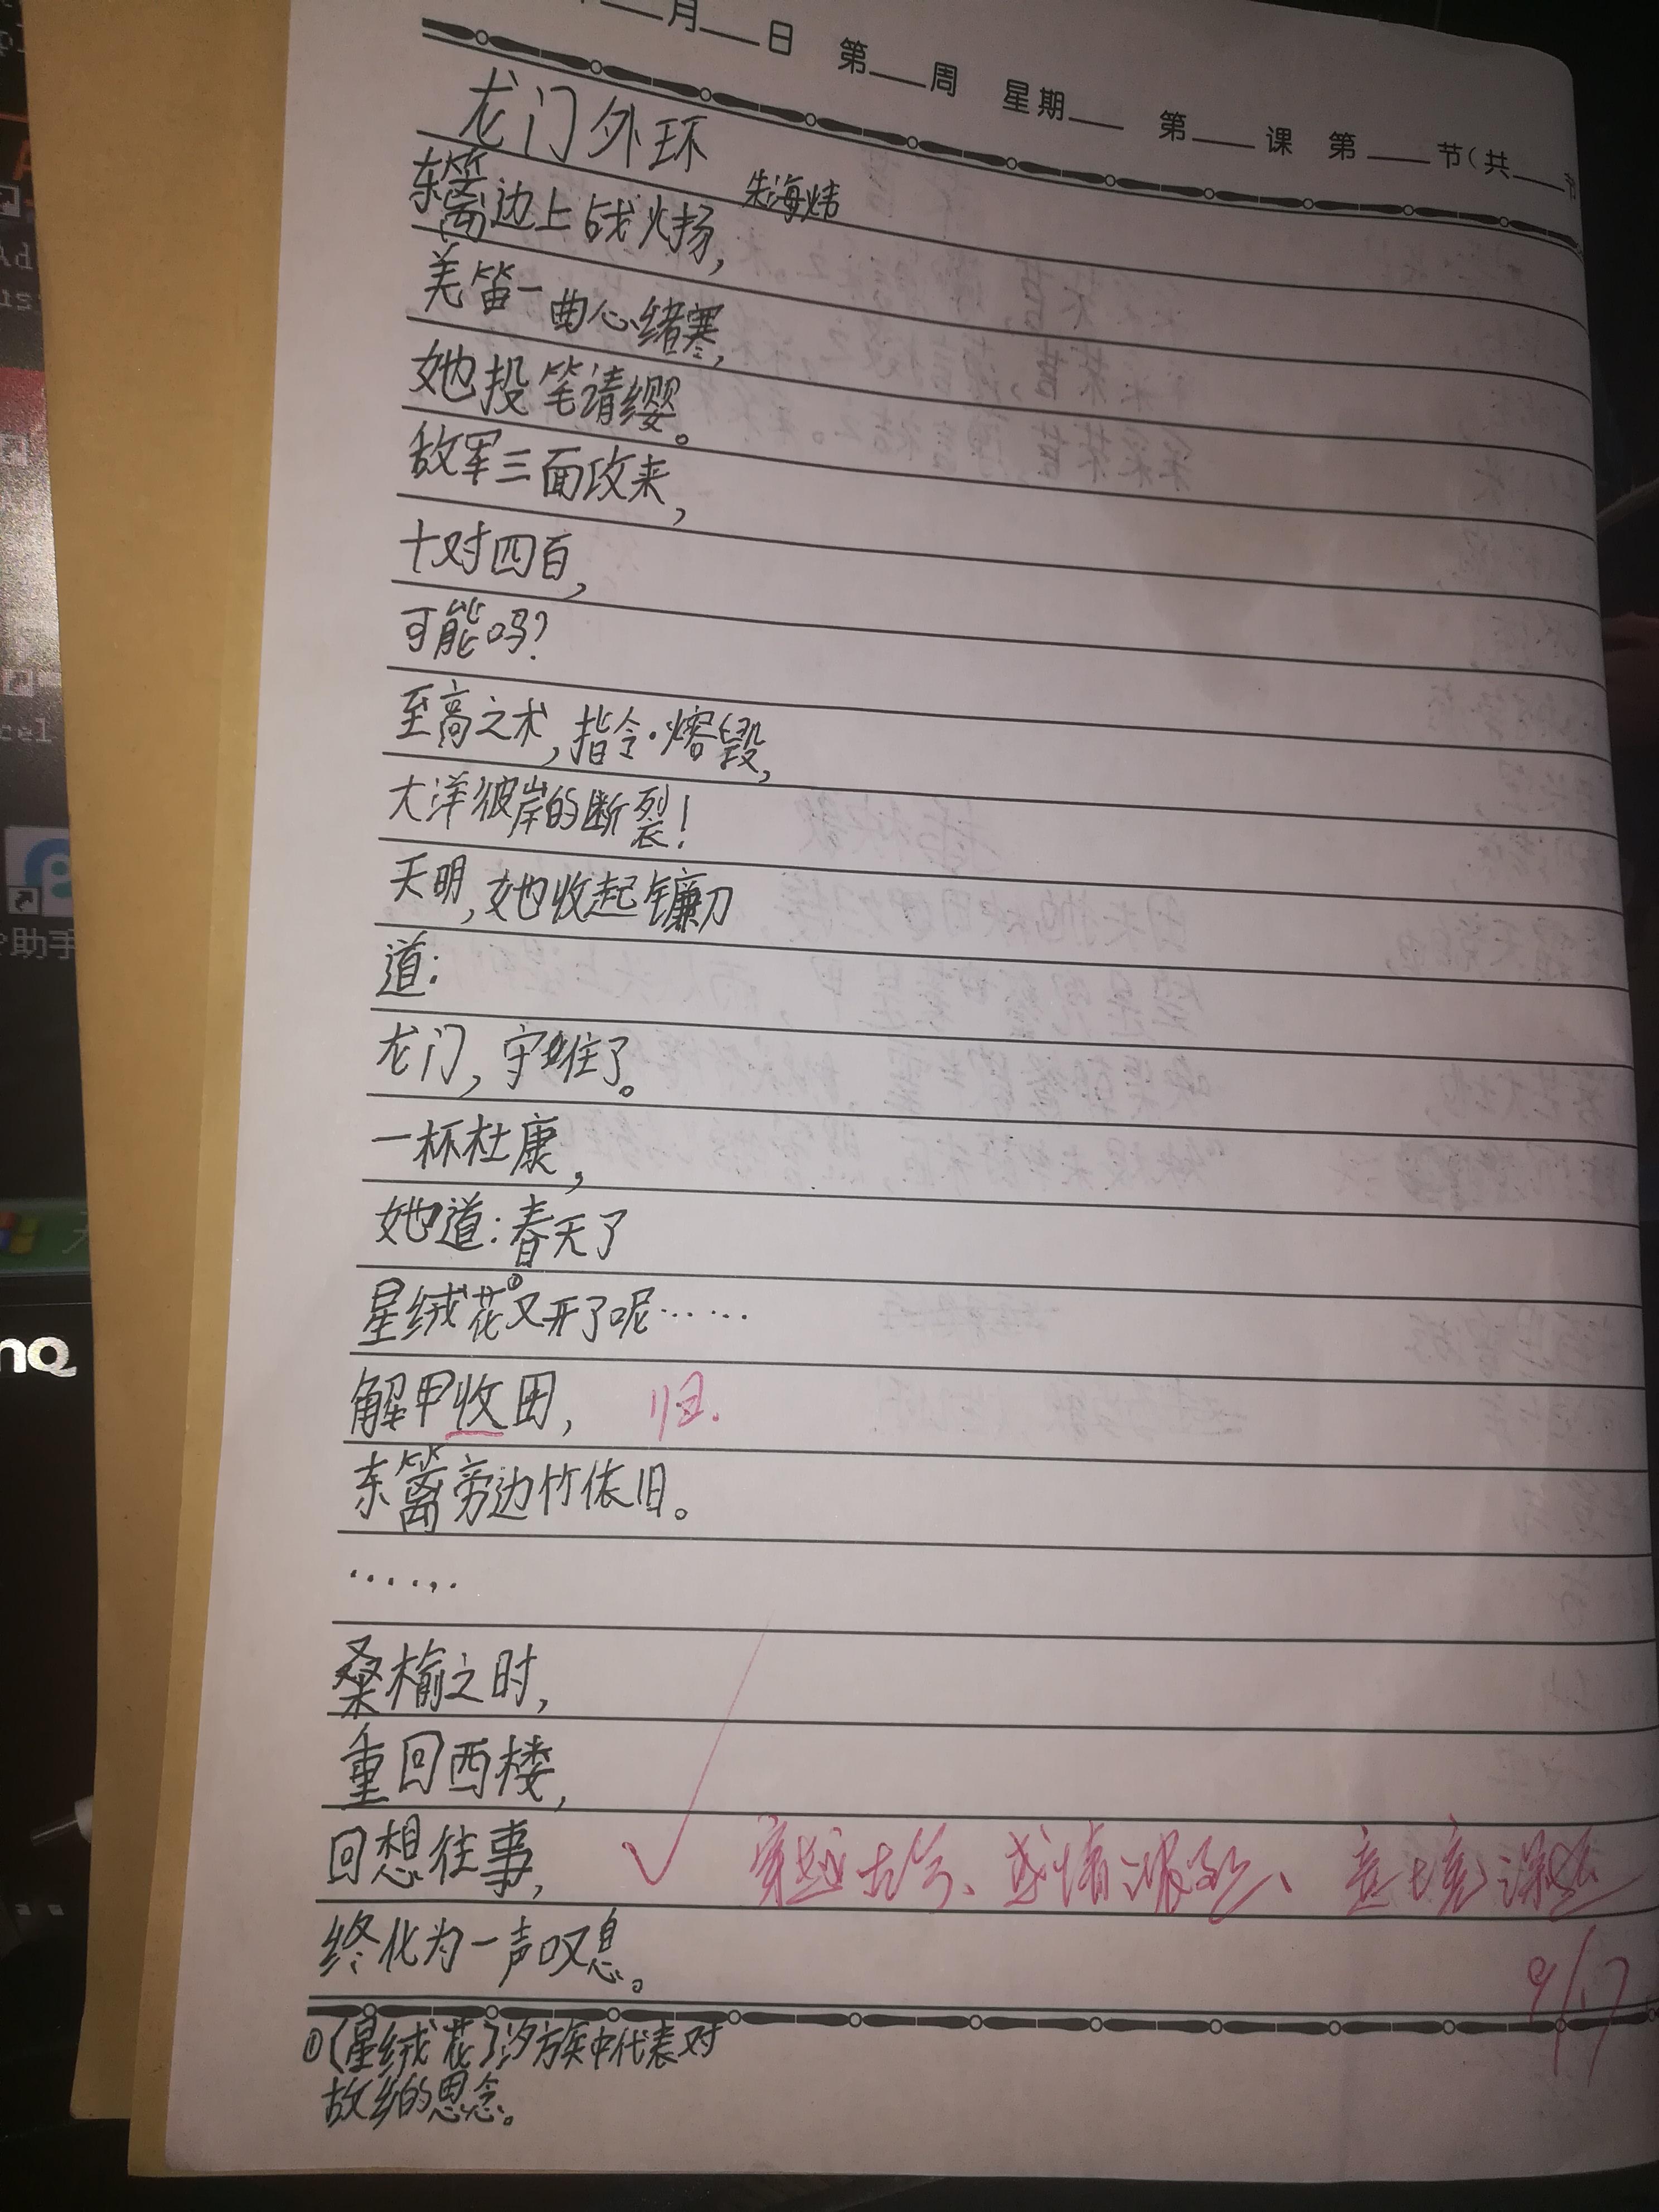 月 日 第 周 星期 第 课 第 节(共
龙门外环
朱海炜
东篱边上战火扬,
羌笛一曲心绪寒,
她投笔请缨。
敌军三面攻来,
十对四百,
可能吗?
至高之术,指令·熔毁,
大洋彼岸的断裂!
天明,她收起镰刀
道:
龙门,守住了。
一杯杜康,
她道:春天了
星绒花①又开了呢……
解甲收田, 归.
东篱旁边竹依旧。
……
桑榆之时,
重回西楼,
回想往事,
穿越古今、感情浓烈、意境深远
终化为一声叹息。
9/17
①〔星绒花〕:汐方族中代表对
故乡的思念。
助手
cel
nQ